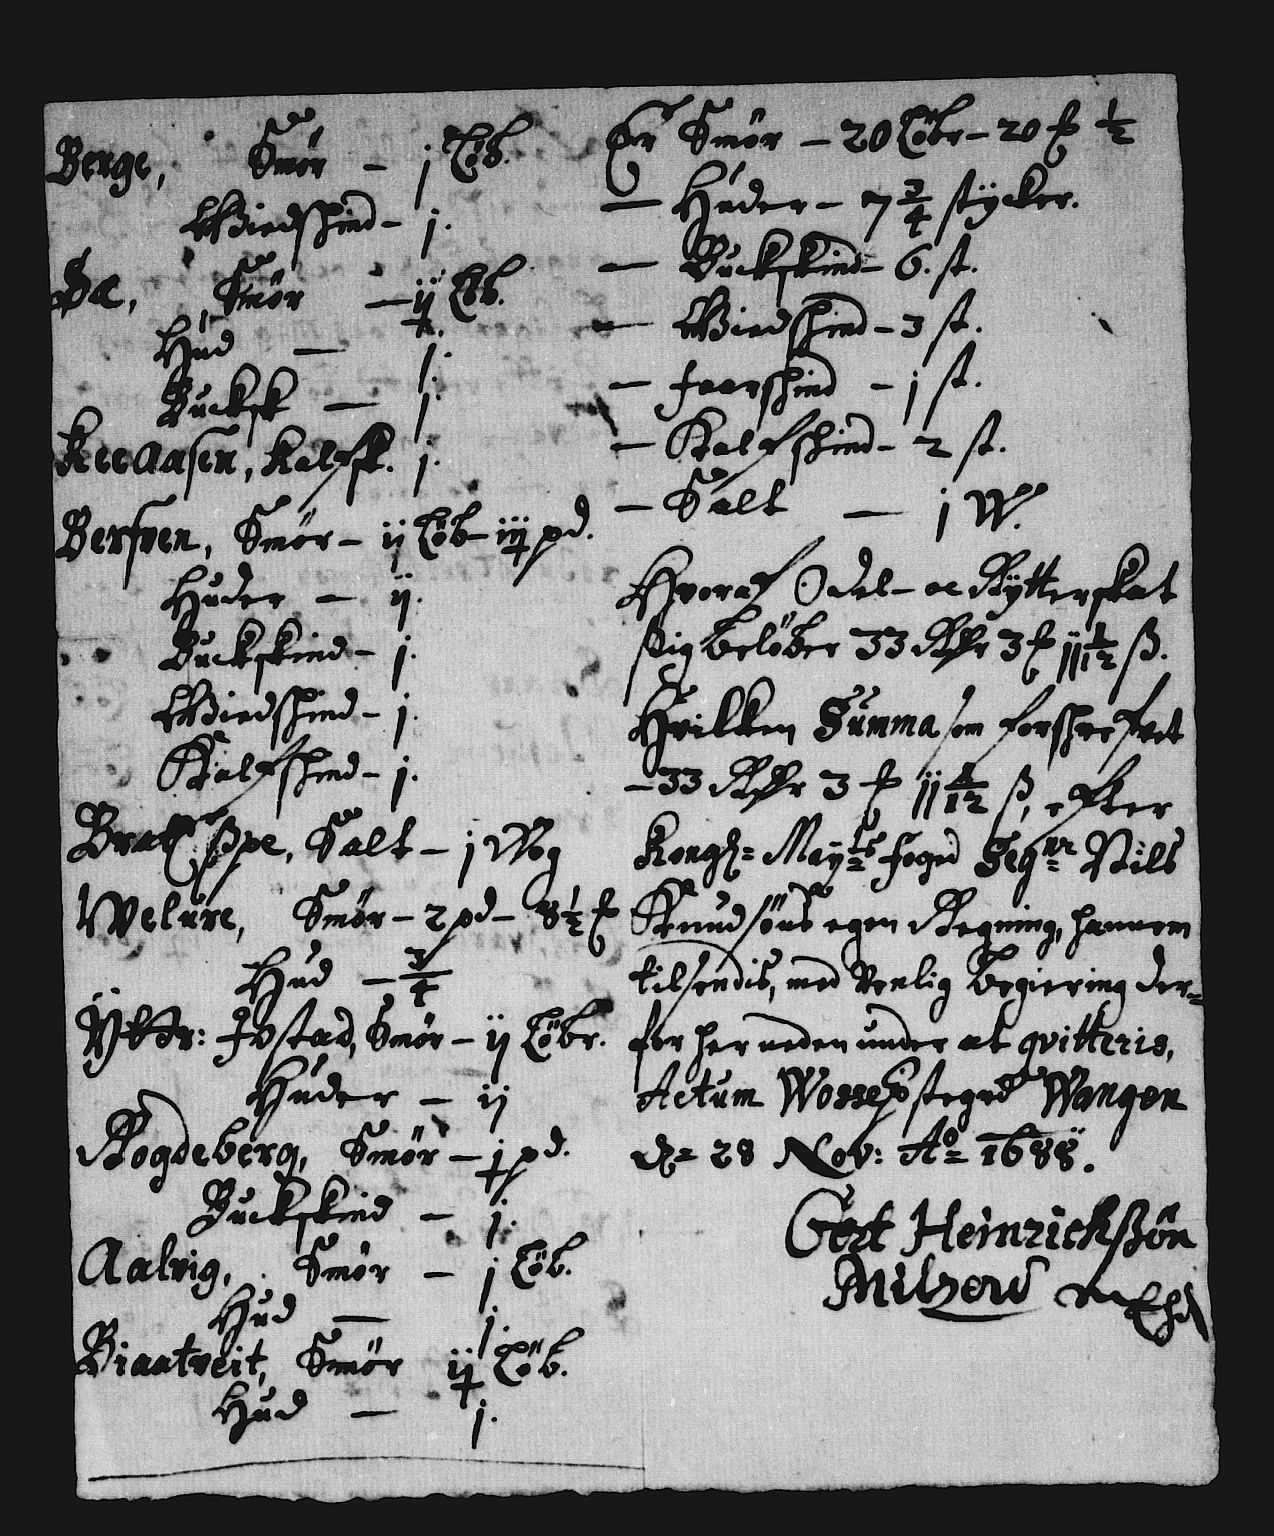 Berge, Smör – j Löb.
Giedskind – j.
Bø, Smör – ij Löb.
Hud – j.
Bucksk – j.
Reeaasen, Kalfsk. j.
Berfven, Smör – ij Löb – iij pd.
Huder – ij.
Buckskind – j.
Giedskind – j.
Kalfskind – j.
Salt – j Wog
Smör – 2 pd – 8½ ℔
Hud – 3/4
Ytter: Smör – ij Löbr.
Huder – ij
Rogdeberg, Smör – j pd.
Buckskind – j.
Aalvig, Smör – j Löb.
Hud – j.
Biaatveit, Smör ij Löb.
Hud – j.
Er Smör – 20 Löbr – 20 ℔ ½
– Huder – 7 3/4 stÿcker.
– Buckskind – 6. st.
– Giedskind – 3 st.
– faarskind – j st.
– Kalfskind – 2 st.
– Salt – j W.
Hvoraf Odel- oc Rÿtterskat
sig belöber 33 Rdr 3 ℔ jj 1/12 ß.
Hvilken Summa som forskrefvet
– 33 Rdr 3 ℔ jj 1/12 ß, efter
Kongl: Maÿts foged Segnr Nils
Knudsöns egen Regning, hannem
tilsendis, med Venlig begiering der=
for her neden under at qvitteris,
Actum Wosse Prestegrd Wangen
d. 28 Nov: Ao 1688.
Gert Heinrichssön
Miltzow mEhd